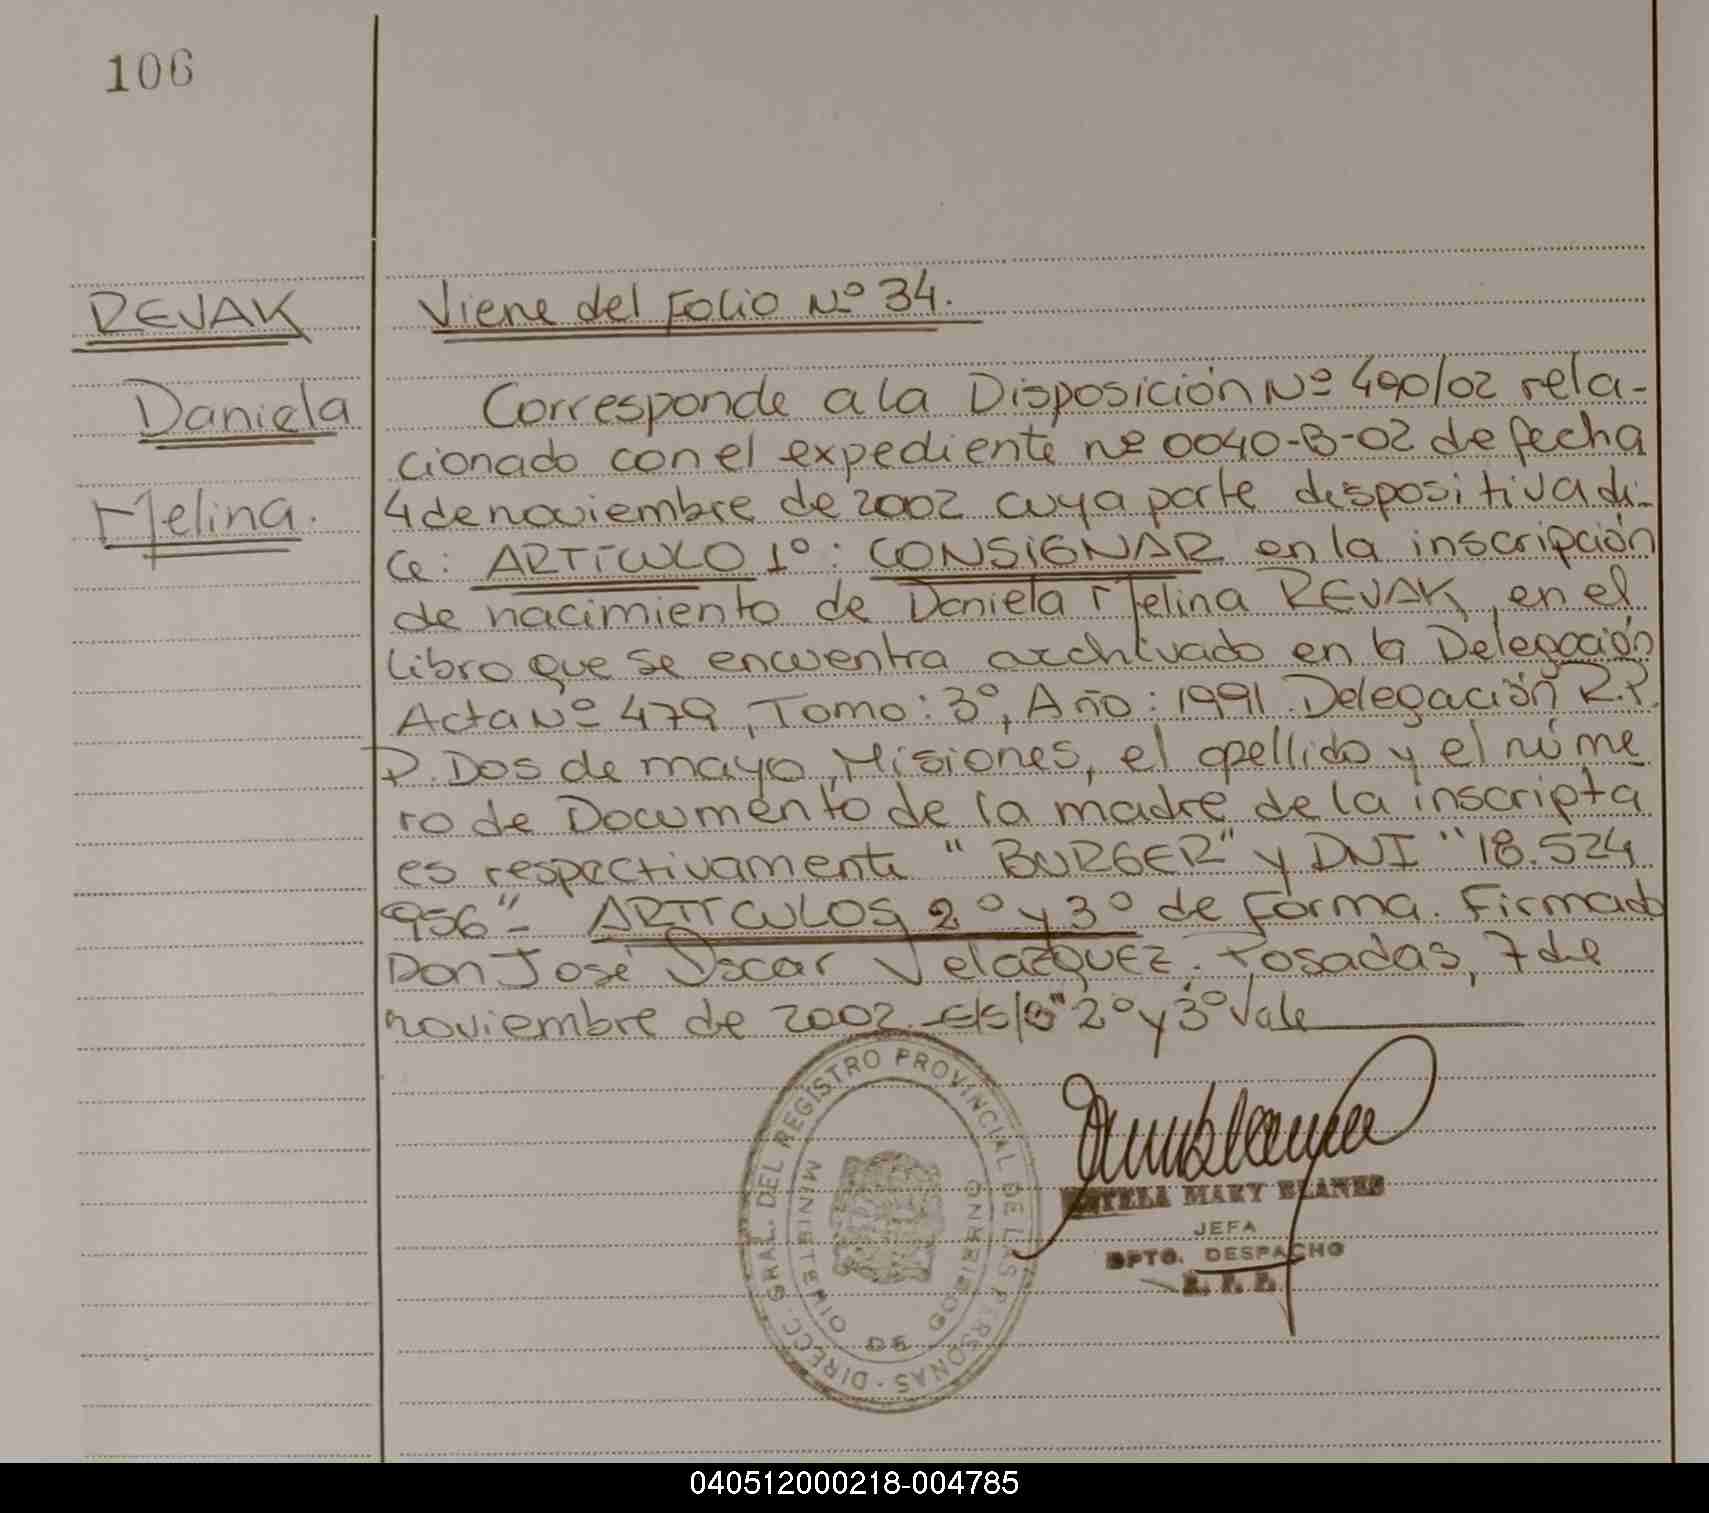 106
REJAK
Daniela
Melina.
Viene del Folio Nº 34.
Corresponde a la Disposición Nº 490/02 rela-
cionado con el expediente nº 0040-B-02 de fecha
4 de noviembre de 2002 cuya parte dispositiva di-
ce: ARTÍCULO 1º: CONSIGNAR en la inscripción
de nacimiento de Daniela Melina REJAK, en el
libro que se encuentra archivado en la Delegación
Acta Nº 479, Tomo: 3º, Año: 1991. Delegación R.P.
P. Dos de mayo, Misiones, el apellido y el núme
ro de Documento de la madre de la inscripta
es respectivamente "BURGER" y DNI "18.524
956"- ARTÍCULOS 2º y 3º de Forma. Firmado
Don José Oscar Velazquez. Posadas, 7 de
noviembre de 2002. E/S/B "2º y 3º Vale
DIRECC. GRAL. DEL REGISTRO PROVINCIAL DE LAS PERSONAS -
MINISTERIO DE GOBIERNO
MARY BLANES
JEFA
DPTO. DESPACHO
R. P. P.
040512000218-004785